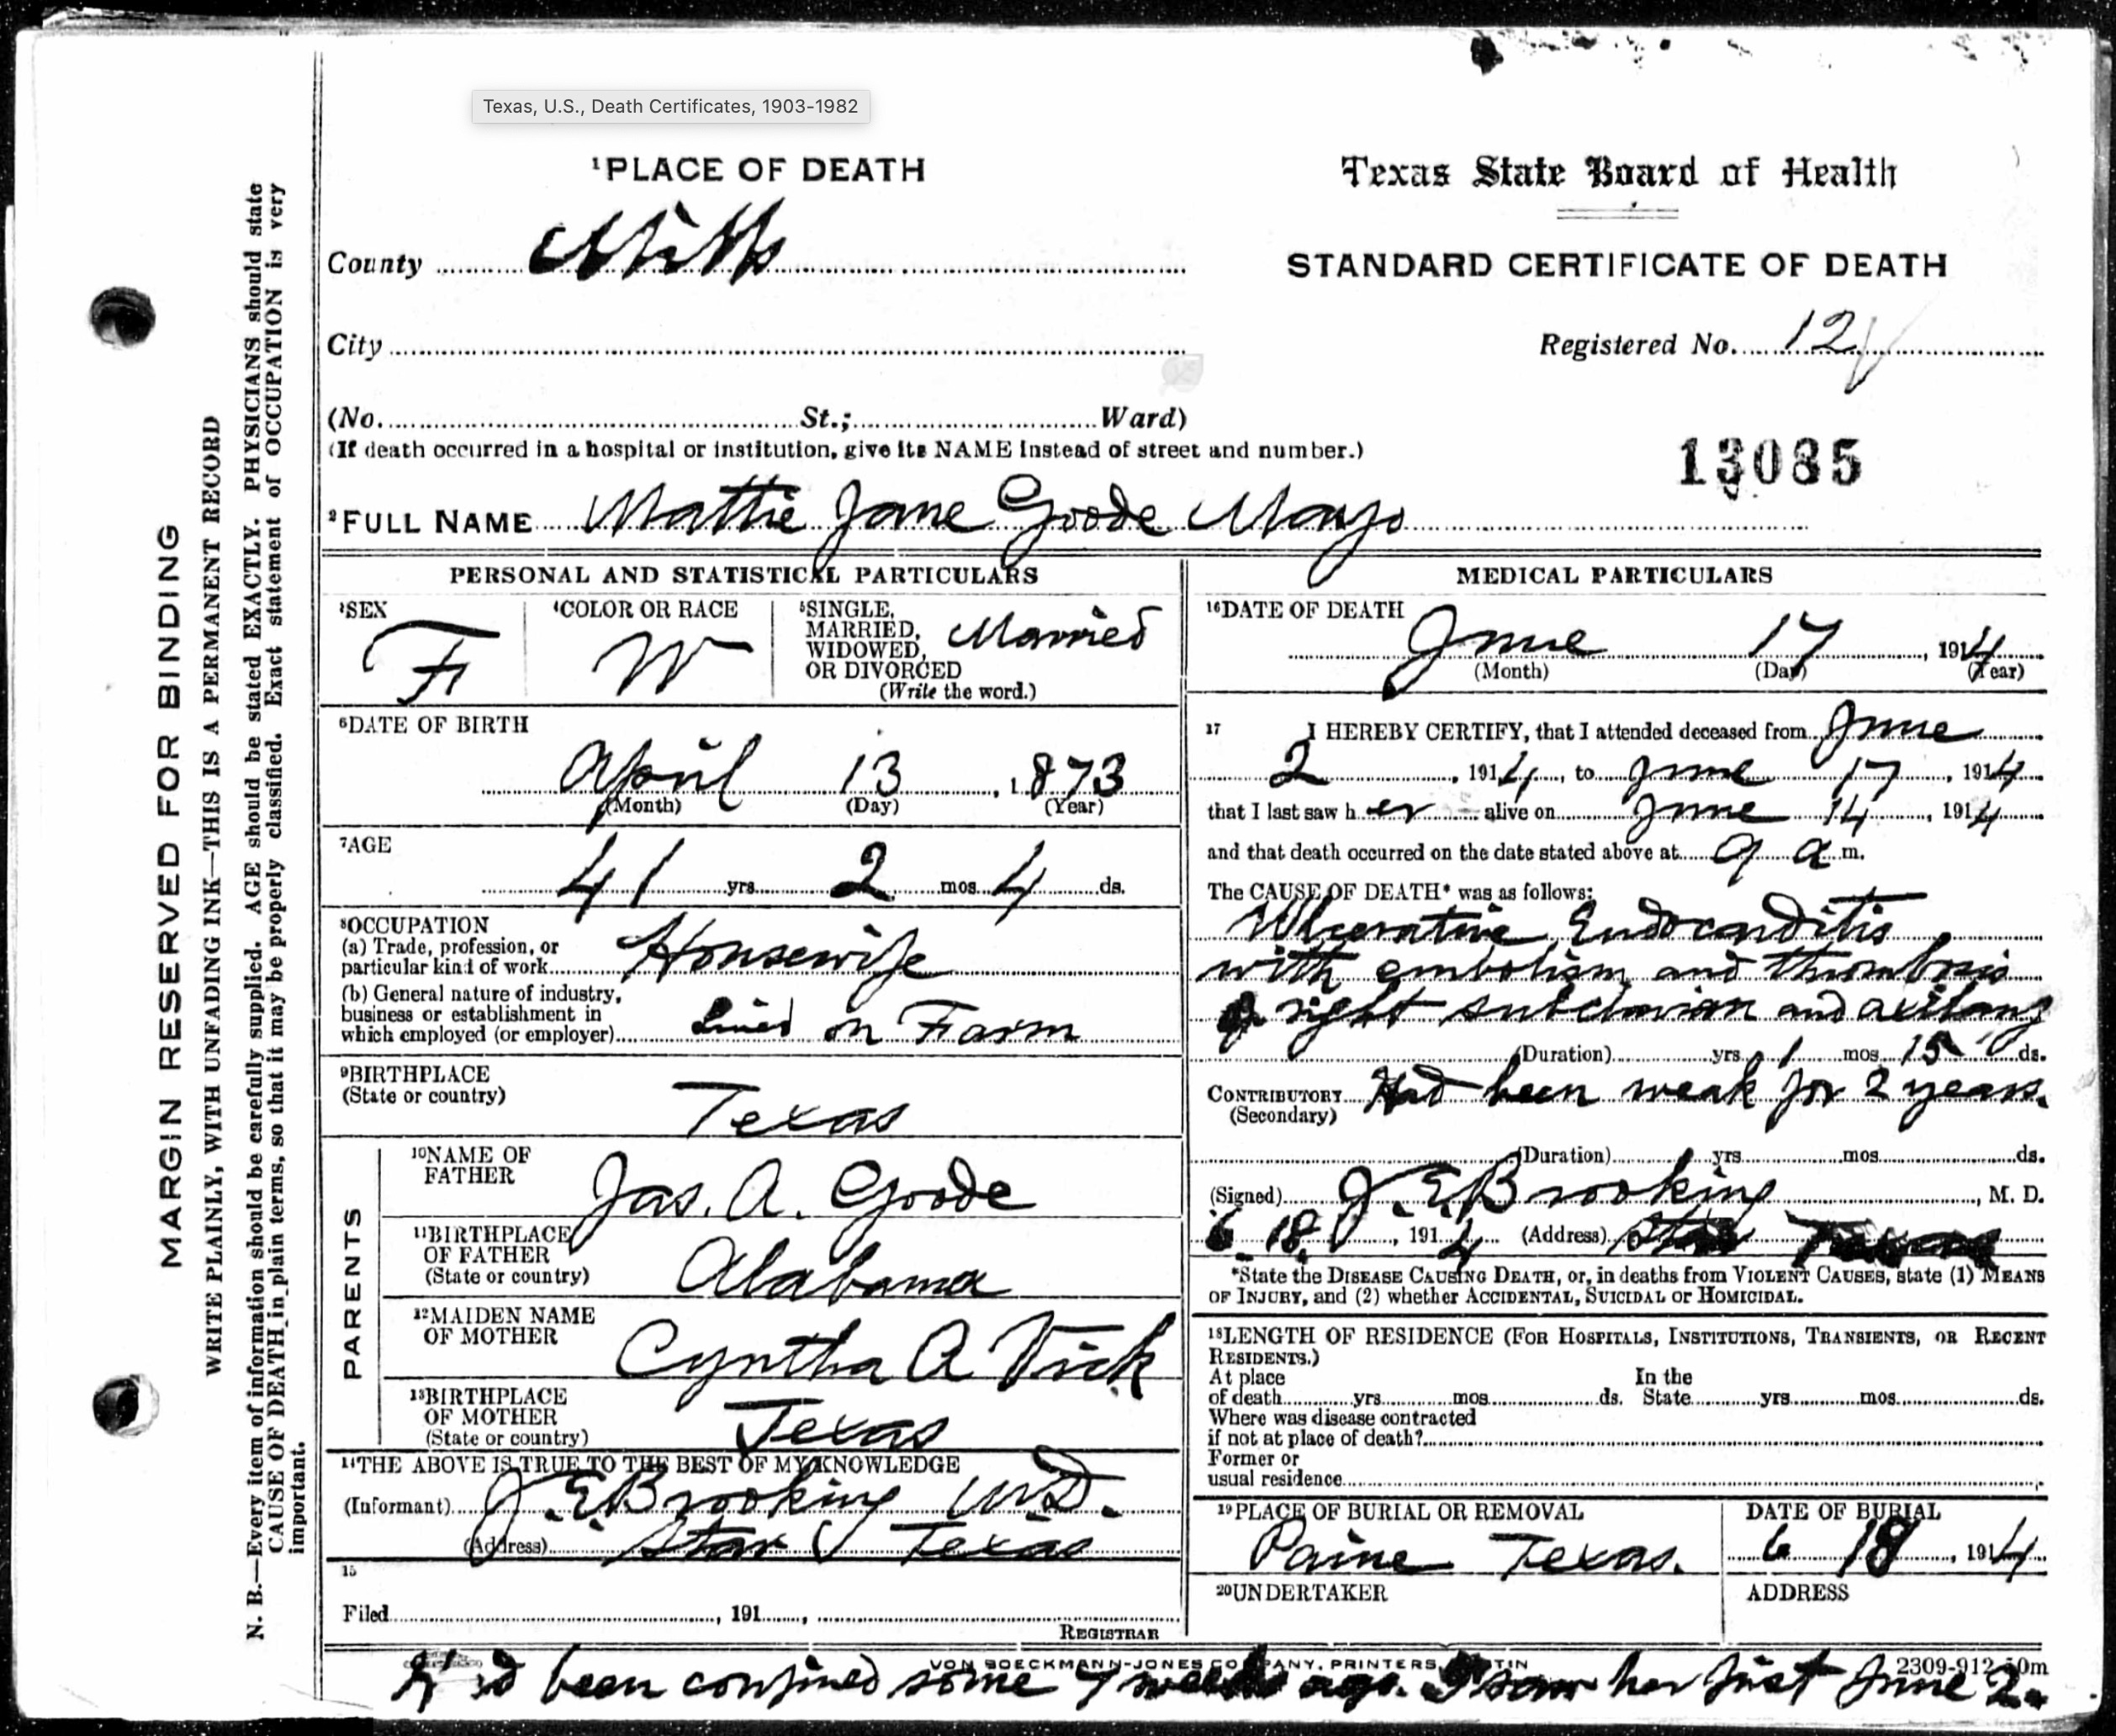 Texas, U.S., Death Certificates, 1903-1982
¹PLACE OF DEATH
County Mills
City
(No. St.; Ward)
(If death occurred in a hospital or institution, give its NAME instead of street and number.)
Texas State Board of Health
STANDARD CERTIFICATE OF DEATH
Registered No. 12
13085
²FULL NAME Mattie Jane Goode Mayo
PERSONAL AND STATISTICAL PARTICULARS
³SEX
F
⁴COLOR OR RACE
W
⁵SINGLE,
MARRIED,
WIDOWED,
OR DIVORCED
(Write the word.)
Married
⁶DATE OF BIRTH
April 13, 1873
(Month) (Day) (Year)
⁷AGE
41 yrs. 2 mos. 4 ds.
⁸OCCUPATION
(a) Trade, profession, or
particular kind of work Housewife
(b) General nature of industry,
business or establishment in
which employed (or employer) Lived on Farm
⁹BIRTHPLACE
(State or country)
Texas
PARENTS
¹⁰NAME OF
FATHER
Jas. A. Goode
¹¹BIRTHPLACE
OF FATHER
(State or country)
Alabama
¹²MAIDEN NAME
OF MOTHER
Cyntha A Vick
¹³BIRTHPLACE
OF MOTHER
(State or country)
Texas
¹⁴THE ABOVE IS TRUE TO THE BEST OF MY KNOWLEDGE
(Informant) J. E. Brooking M.D.
(Address) Star Texas
¹⁵
Filed , 191 ,
REGISTRAR
MEDICAL PARTICULARS
¹⁶DATE OF DEATH
June 17, 1914
(Month) (Day) (Year)
¹⁷ I HEREBY CERTIFY, that I attended deceased from June
2, 1914, to June 17, 1914
that I last saw her alive on June 14, 1914
and that death occurred on the date stated above at 9 a m.
The CAUSE OF DEATH* was as follows:
Ulcerative Endocarditis
with embolism and thrombosis
of right subclavian and axillary
(Duration) yrs. 1 mos. 15 ds.
CONTRIBUTORY Had been weak for 2 years.
(Secondary)
(Duration) yrs. mos. ds.
(Signed) J. E. Brooking, M. D.
6 18, 1914 (Address) Star Texas
*State the DISEASE CAUSING DEATH, or, in deaths from VIOLENT CAUSES, state (1) MEANS
OF INJURY, and (2) whether ACCIDENTAL, SUICIDAL or HOMICIDAL.
¹⁸LENGTH OF RESIDENCE (FOR HOSPITALS, INSTITUTIONS, TRANSIENTS, OR RECENT
RESIDENTS.)
At place In the
of death yrs. mos. ds. State yrs. mos. ds.
Where was disease contracted
if not at place of death?
Former or
usual residence
¹⁹PLACE OF BURIAL OR REMOVAL
Paine Texas.
DATE OF BURIAL
6 18, 1914
²⁰UNDERTAKER
ADDRESS
VON BOECKMANN-JONES COMPANY, PRINTERS, AUSTIN
2309-912-10m
been confined some 7 weeks ago. I saw her first June 2.
MARGIN RESERVED FOR BINDING
WRITE PLAINLY, WITH UNFADING INK—THIS IS A PERMANENT RECORD
N. B.—Every item of information should be carefully supplied. AGE should be stated EXACTLY. PHYSICIANS should state
CAUSE OF DEATH in plain terms, so that it may be properly classified. Exact statement of OCCUPATION is very
important.